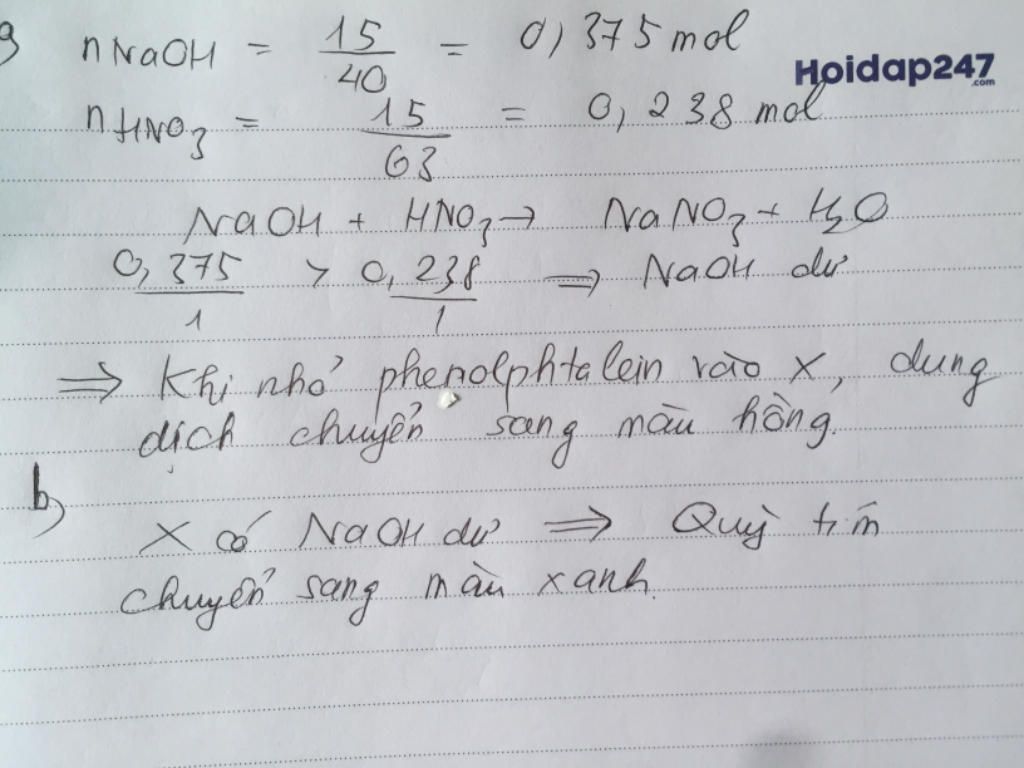 a
nNaOH = 15/40 = 0,375 mol
Hoidap247
.com
nHNO3 = 15/63 = 0,238 mol
NaOH + HNO3 → NaNO3 + H2O
0,375/1 > 0,238/1 ⇒ NaOH dư
⇒ Khi nhỏ phenolphtalein vào X, dung
dịch chuyển sang màu hồng.
b)
X có NaOH dư ⇒ Quỳ tím
chuyển sang màu xanh.